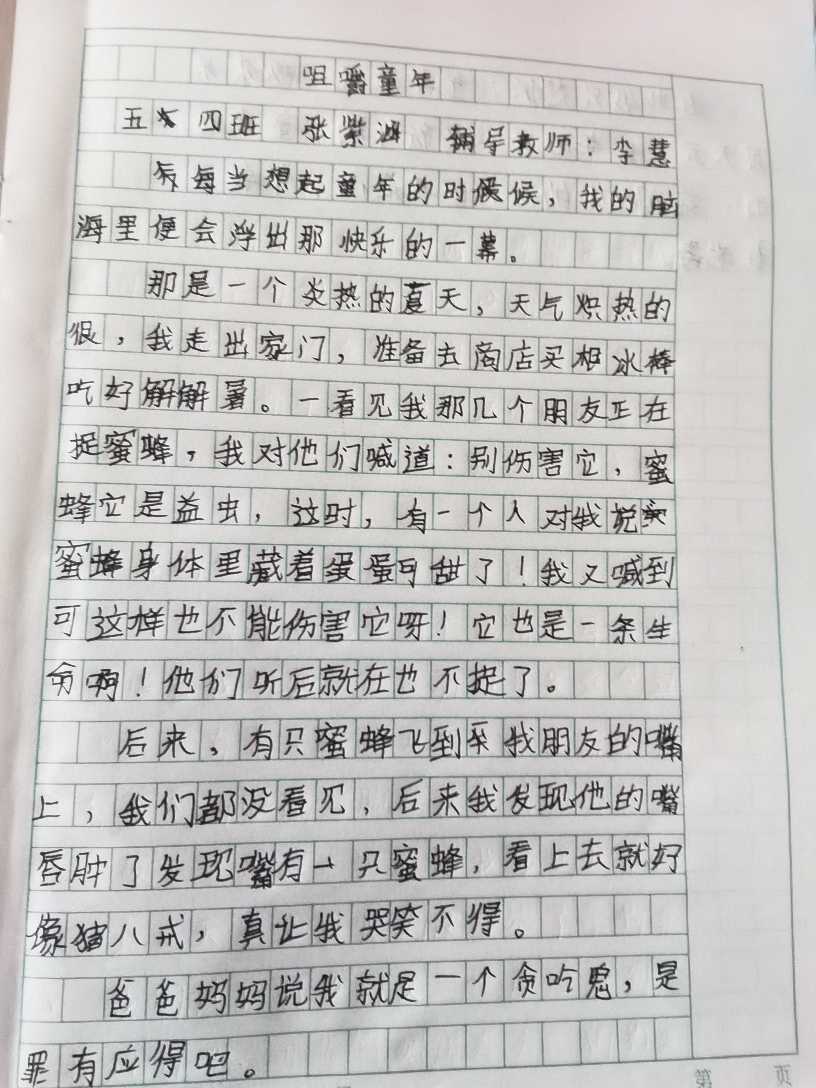 咀嚼童年
五、四班 张紫涵 辅导教师：李慧
每当想起童年的时候候，我的脑
海里便会浮出那快乐的一幕。
那是一个炎热的夏天，天气炽热的
很，我走出家门，准备去商店买根冰棒
吃好解解暑。一看见我那几个朋友正在
捉蜜蜂，我对他们喊道：别伤害它，蜜
蜂它是益虫，这时，有一个人对我说
蜜蜂身体里藏着蛋蛋可甜了！我又喊到
可这样也不能伤害它呀！它也是一条生
命啊！他们听后就在也不捉了。
后来，有只蜜蜂飞到采我朋友的嘴
上，我们都没看见，后来我发现他的嘴
唇肿了发现嘴有一只蜜蜂，看上去就好
像猪八戒，真让我哭笑不得。
爸爸妈妈说我就是一个贪吃鬼，是
罪有应得吧。
第 页